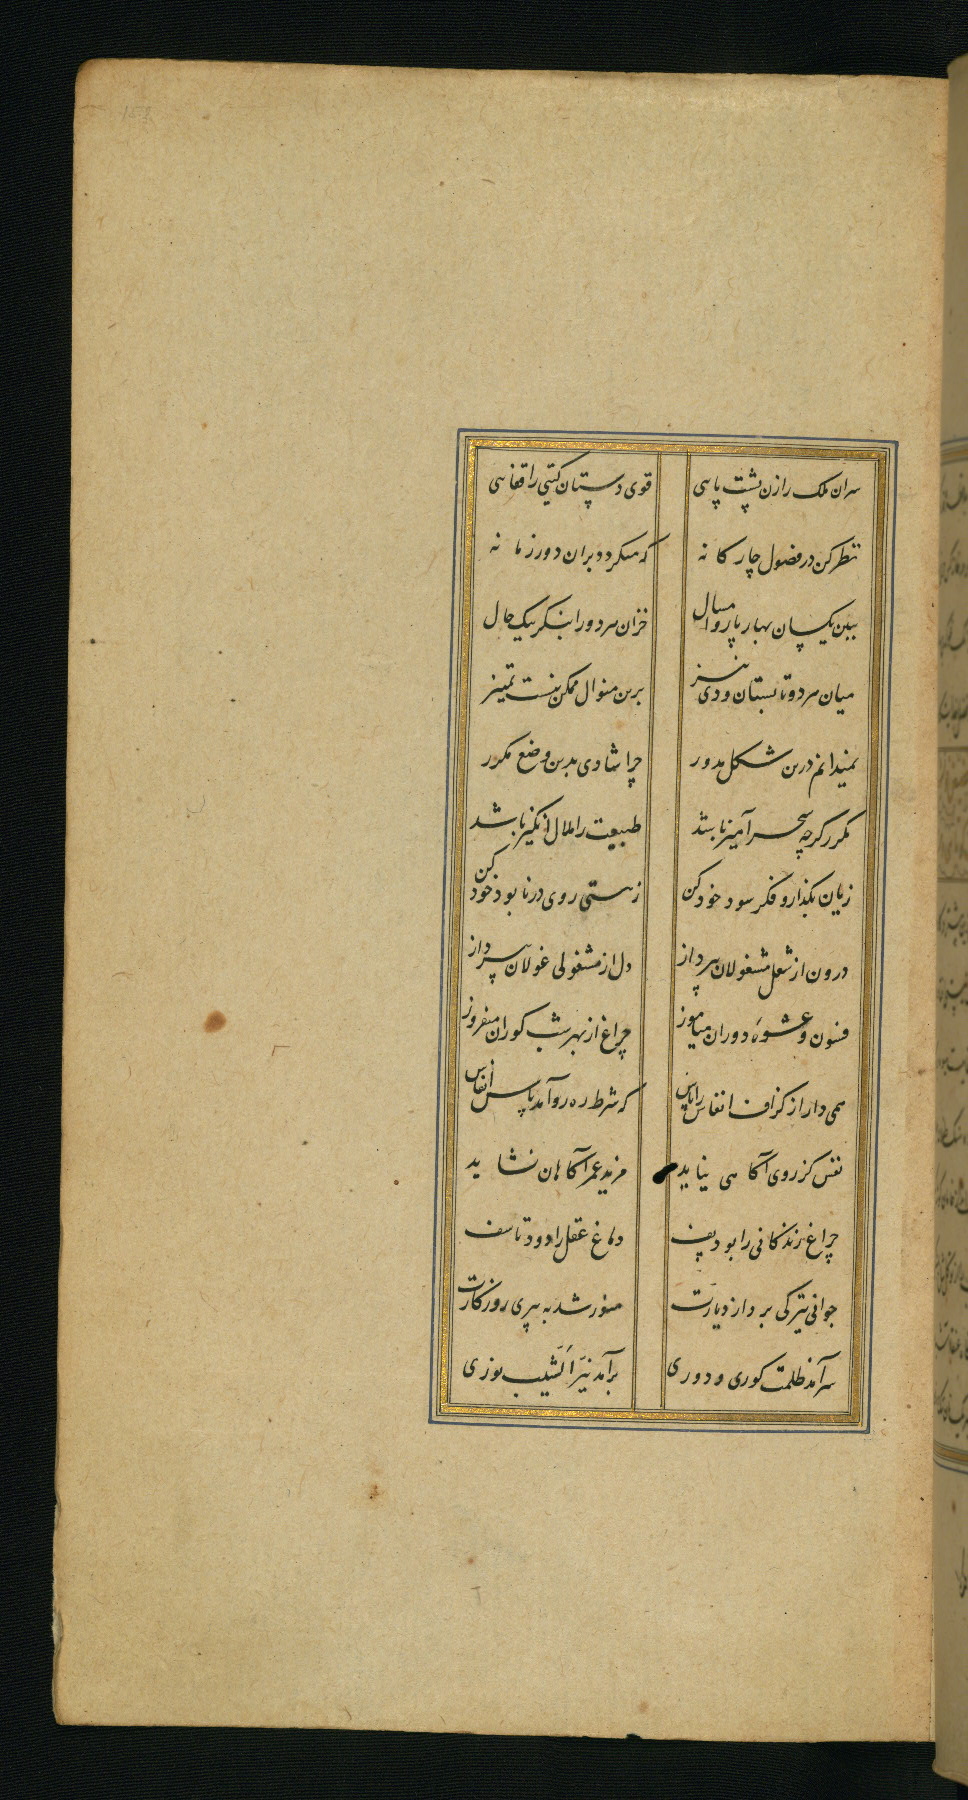 سران ملک را زن پشت پایی قوی دستان گیتی را قفایی
نظر کن در فصول چارگانه که میگردد بران دور زمانه
ببین یکسان بهار پار و امسال خزان هر دو را بنگر بیک حال
میان هر دو تابستان و دی نیز برین منوال ممکن نیست تمییز
نمیدانم درین شکل مدور چرا شادی بدین وضع مکرر
مکرر گرچه سحرآمیز باشد طبیعت را ملال انگیز باشد
زیان بگذار و فکر سود خود کن ز هستی روی در نابود خود کن
درون از شغل مشغولان بپرداز دل از مشغولی غولان بپرداز
فسون و عشوهٔ دوران میاموز چراغ از بهر شب کوران میفروز
همی دار از گزاف انفاس را پاس که شرط رهرو آمد پاس انفاس
نفس کز روی آگاهی نیاید مزید عمر آگاهان نشاید
چراغ زندگانی را بود پف دماغ عقل را دود تاسف
جوانی تیرگی برد از دیارت منور شد به پیری روزگارت
سرآمد ظلمت کوری و دوری برآمد نیر الشیب نوری